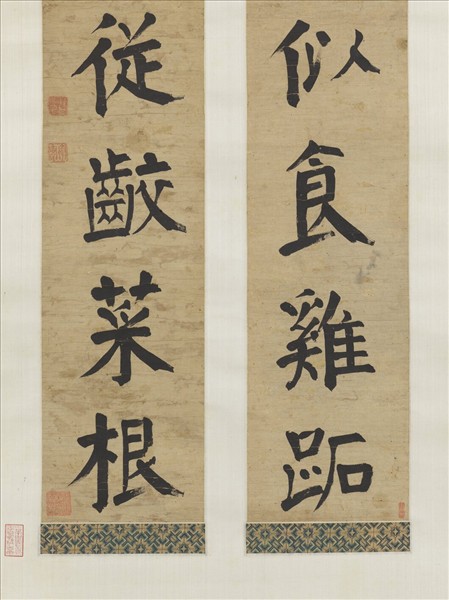 似食雞跖
従齩菜根